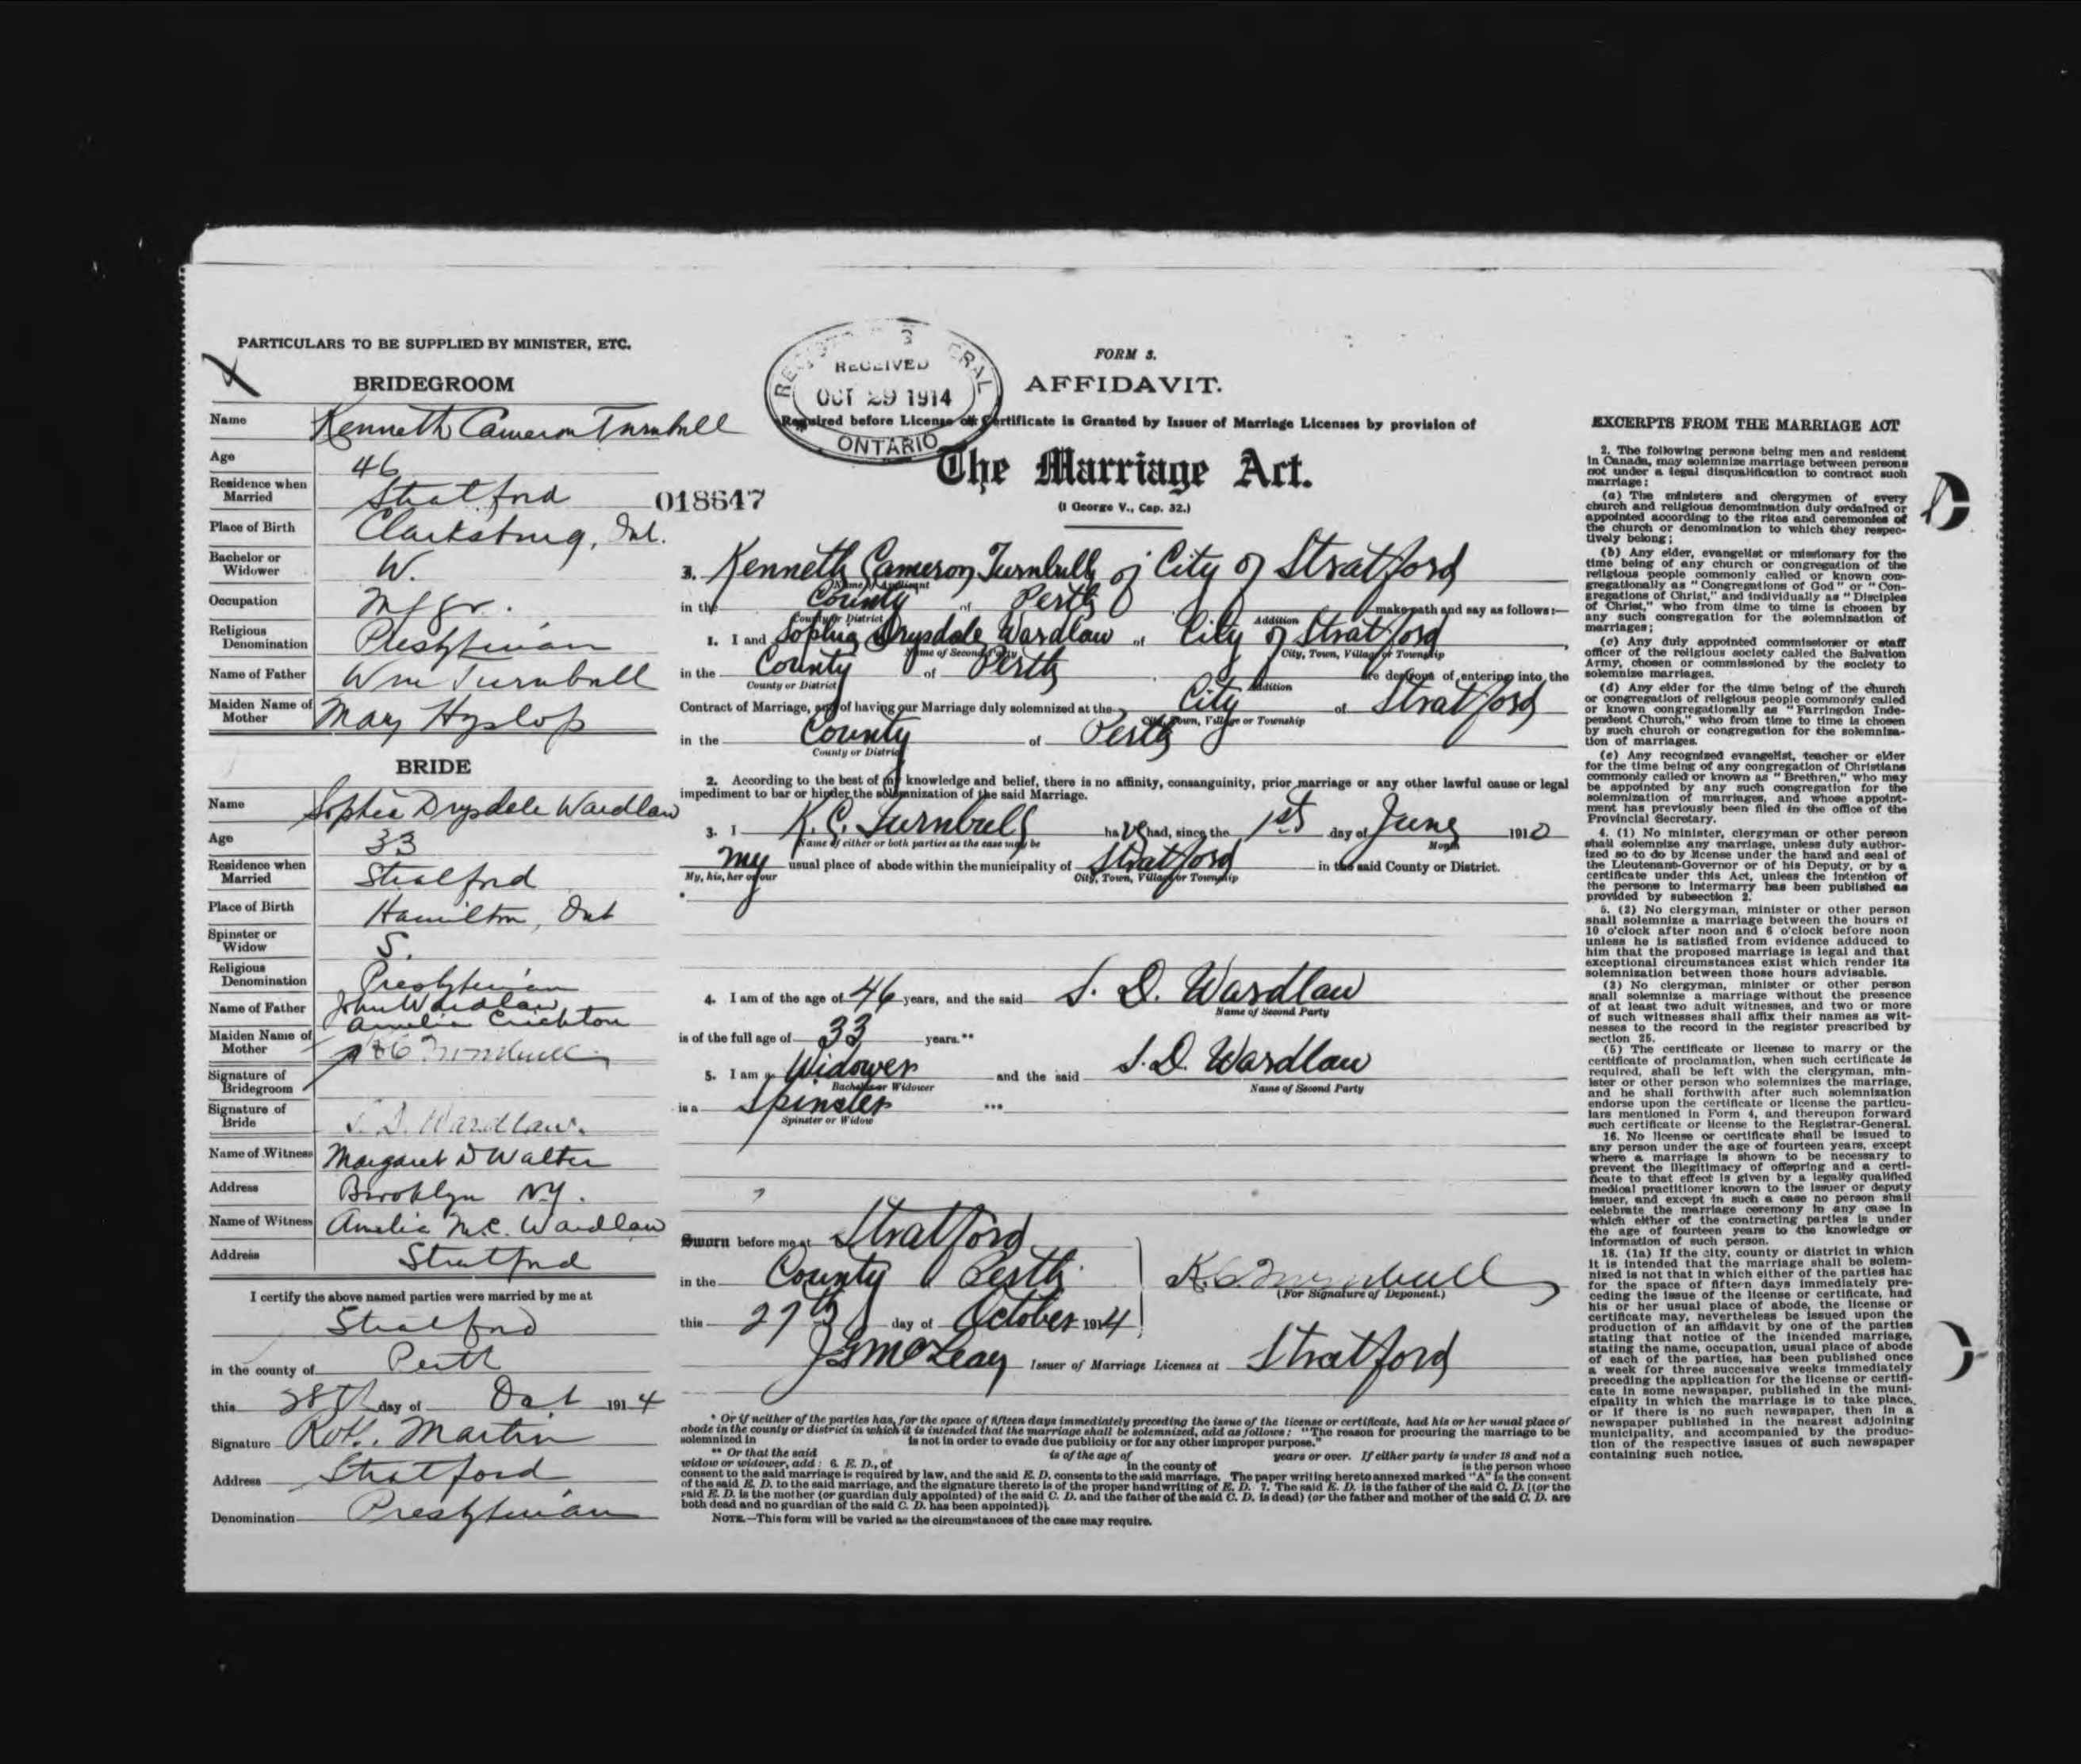 PARTICULARS TO BE SUPPLIED BY MINISTER, ETC.
BRIDEGROOM
Name Kenneth Cameron Turnbull
Age 46
Residence when Married Stratford
Place of Birth Clarksburg, Ont.
Bachelor or Widower W.
Occupation Mfgr.
Religious Denomination Presbyterian
Name of Father Wm Turnbull
Maiden Name of Mother Mary Hyslop
BRIDE
Name Sophia Drysdale Wardlaw
Age 33
Residence when Married Stratford
Place of Birth Hamilton, Ont
Spinster or Widow S.
Religious Denomination Presbyterian
Name of Father John Wardlaw
Maiden Name of Mother Amelia Crichton
Signature of Bridegroom K C Turnbull
Signature of Bride S. D. Wardlaw.
Name of Witness Margaret D Walter
Address Brooklyn N.Y.
Name of Witness Amelia M.C. Wardlaw
Address Stratford
I certify the above named parties were married by me at
Stratford
in the county of Perth
this 28th day of Oct 1914
Signature Robt. Martin
Address Stratford
Denomination Presbyterian
RECEIVED
OCT 29 1914
ONTARIO
018647
FORM 3.
AFFIDAVIT.
Required before License or Certificate is Granted by Issuer of Marriage Licenses by provision of
The Marriage Act.
(1 George V., Cap. 32.)
3. Kenneth Cameron Turnbull of City of Stratford
Name of Applicant
in the County of Perth make oath and say as follows:—
County or District Addition
1. I and Sophia Drysdale Wardlaw of City of Stratford
Name of Second Party City, Town, Village or Township
in the County of Perth are desirous of entering into the
County or District Addition
Contract of Marriage, and of having our Marriage duly solemnized at the City of Stratford
City, Town, Village or Township
in the County of Perth
County or District
2. According to the best of my knowledge and belief, there is no affinity, consanguinity, prior marriage or any other lawful cause or legal
impediment to bar or hinder the solemnization of the said Marriage.
3. I K. C. Turnbull have had, since the 1st day of June 1910
Name of either or both parties as the case may be Month
my usual place of abode within the municipality of Stratford in the said County or District.
My, his, her or our City, Town, Village or Township
*
4. I am of the age of 46 years, and the said S. D. Wardlaw
Name of Second Party
is of the full age of 33 years.**
5. I am a Widower and the said S. D. Wardlaw
Bachelor or Widower Name of Second Party
is a Spinster ***
Spinster or Widow
Sworn before me at Stratford
in the County Perth K. C. Turnbull
(For Signature of Deponent.)
this 27th day of October 1914
J G McLeay Issuer of Marriage Licenses at Stratford
* Or if neither of the parties has, for the space of fifteen days immediately preceding the issue of the license or certificate, had his or her usual place of
abode in the county or district in which it is intended that the marriage shall be solemnized, add as follows: "The reason for procuring the marriage to be
solemnized in is not in order to evade due publicity or for any other improper purpose."
** Or that the said is of the age of years or over. If either party is under 18 and not a
widow or widower, add: 6. E. D., of in the county of is the person whose
consent to the said marriage is required by law, and the said E. D. consents to the said marriage. The paper writing hereto annexed marked "A" is the consent
of the said E. D. to the said marriage, and the signature thereto is of the proper handwriting of E. D. 7. The said E. D. is the father of the said C. D. [(or the
said E. D. is the mother (or guardian duly appointed) of the said C. D. and the father of the said C. D. is dead) (or the father and mother of the said C. D. are
both dead and no guardian of the said C. D. has been appointed)].
NOTE.—This form will be varied as the circumstances of the case may require.
EXCERPTS FROM THE MARRIAGE ACT
2. The following persons being men and resident
in Canada, may solemnize marriage between persons
not under a legal disqualification to contract such
marriage:
(a) The ministers and clergymen of every
church and religious denomination duly ordained or
appointed according to the rites and ceremonies of
the church or denomination to which they respec-
tively belong;
(b) Any elder, evangelist or missionary for the
time being of any church or congregation of the
religious people commonly called or known con-
gregationally as "Congregations of God" or "Con-
gregations of Christ," and individually as "Disciples
of Christ," who from time to time is chosen by
any such congregation for the solemnization of
marriages;
(c) Any duly appointed commissioner or staff
officer of the religious society called the Salvation
Army, chosen or commissioned by the society to
solemnize marriages.
(d) Any elder for the time being of the church
or congregation of religious people commonly called
or known congregationally as "Farringdon Inde-
pendent Church," who from time to time is chosen
by such church or congregation for the solemniza-
tion of marriages.
(e) Any recognized evangelist, teacher or elder
for the time being of any congregation of Christians
commonly called or known as "Brethren," who may
be appointed by any such congregation for the
solemnization of marriages, and whose appoint-
ment has previously been filed in the office of the
Provincial Secretary.
4. (1) No minister, clergyman or other person
shall solemnize any marriage, unless duly author-
ized so to do by license under the hand and seal of
the Lieutenant-Governor or of his Deputy, or by a
certificate under this Act, unless the intention of
the persons to intermarry has been published as
provided by subsection 2.
5. (2) No clergyman, minister or other person
shall solemnize a marriage between the hours of
10 o'clock after noon and 6 o'clock before noon
unless he is satisfied from evidence adduced to
him that the proposed marriage is legal and that
exceptional circumstances exist which render its
solemnization between those hours advisable.
(3) No clergyman, minister or other person
shall solemnize a marriage without the presence
of at least two adult witnesses, and two or more
of such witnesses shall affix their names as wit-
nesses to the record in the register prescribed by
section 25.
(5) The certificate or license to marry or the
certificate of proclamation, when such certificate is
required, shall be left with the clergyman, min-
ister or other person who solemnizes the marriage,
and he shall forthwith after such solemnization
endorse upon the certificate or license the particu-
lars mentioned in Form 4, and thereupon forward
such certificate or license to the Registrar-General.
16. No license or certificate shall be issued to
any person under the age of fourteen years, except
where a marriage is shown to be necessary to
prevent the illegitimacy of offspring and a certi-
ficate to that effect is given by a legally qualified
medical practitioner known to the issuer or deputy
issuer, and except in such a case no person shall
celebrate the marriage ceremony in any case in
which either of the contracting parties is under
the age of fourteen years to the knowledge or
information of such person.
18. (1a) If the city, county or district in which
it is intended that the marriage shall be solem-
nized is not that in which either of the parties has
for the space of fifteen days immediately pre-
ceding the issue of the license or certificate, had
his or her usual place of abode, the license or
certificate may, nevertheless be issued upon the
production of an affidavit by one of the parties
stating that notice of the intended marriage,
stating the name, occupation, usual place of abode
of each of the parties, has been published once
a week for three successive weeks immediately
preceding the application for the license or certifi-
cate in some newspaper, published in the muni-
cipality in which the marriage is to take place,
or if there is no such newspaper, then in a
newspaper published in the nearest adjoining
municipality, and accompanied by the produc-
tion of the respective issues of such newspaper
containing such notice.